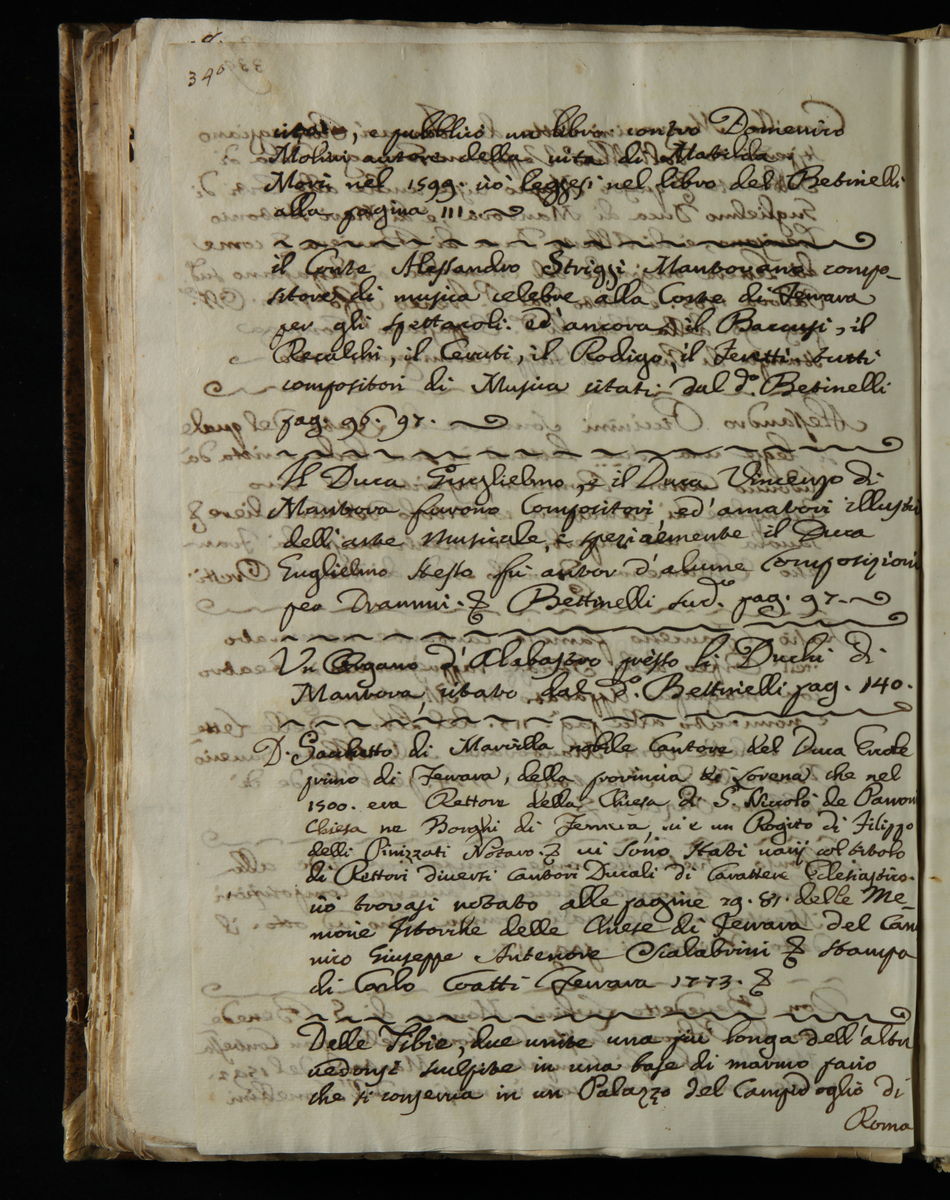 340
, e pubblicò un libro contro Domenico
Molini autore della vita di Matilda.
Morì nel 1599. ciò leggesi nel libro del Betinelli
alla pagina 111
il Conte Alessandro Striggi Mantovano compo_
sitore di musica celebre alla Corte di Ferrara
per gli spettacoli. ed' ancora il Baccusi, il
Recalchi, il Ceruti, il Rodigo, il Feretti tutti
compositori di Musica citati dal d.º Betinelli
pag. 96. 97.
Il Duca Guglielmo, e il Duca Vincenzo di
Mantova furono Compositori, ed' amatori illustri
dell'arte Musicale, e spezialmente il Duca
Guglielmo stesso fù autor d'alcune Composizioni
per Drammi. Bettinelli sud.º pag. 97.
Un Organo d'Alabastro presso li Duchi di
Mantova, citato dal d.º Bettinelli pag. 140.
D. Sachetto di Marvilla nobile Cantore del Duca Ercole
primo di Ferrara, della provincia di Lorena che nel
1500. era Rettore della Chiesa di S. Niccolò de Parroni
Chiesa ne Borghi di Ferrara, vi è un Rogito di Filippo
delli Pinizzati Notaro. vi sono stati varij col titolo
di Rettori diversi Cantori Ducali di Carattere Eclesiastico.
ciò trovasi notato alle pagine 29. 81. delle Me_
morie Istoriche delle Chiese di Ferrara del Can
nico Giuseppe Antenore Scalabrini stampa
di Carlo Coatti Ferrara 1773.
Delle Tibie, due unite una più longa dell'altra
vedonsi sculpite in una base di marmo pario
che si conserva in un Palazzo del Campidoglio di
Roma